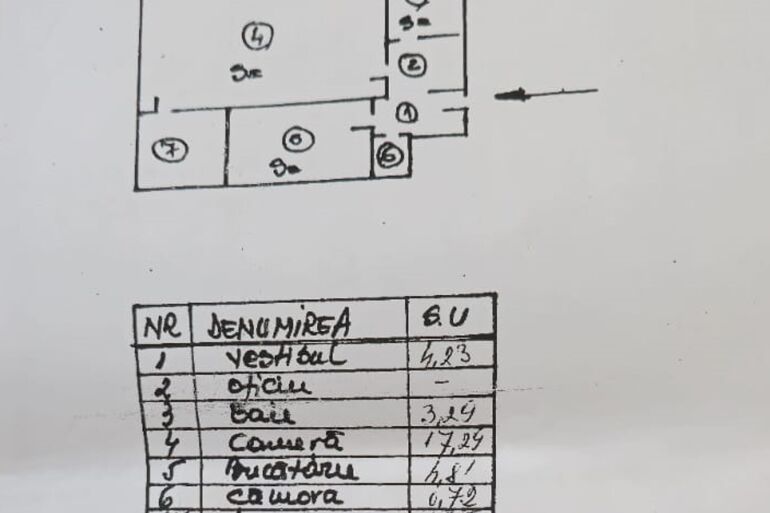 4
2
1
7
6
NR DENUMIREA S.U
1 vestibul 4,23
2 oficiu -
3 baie 3,24
4 Cameră 17,24
5 Bucătărie 4,81
6 Cămara 0,72